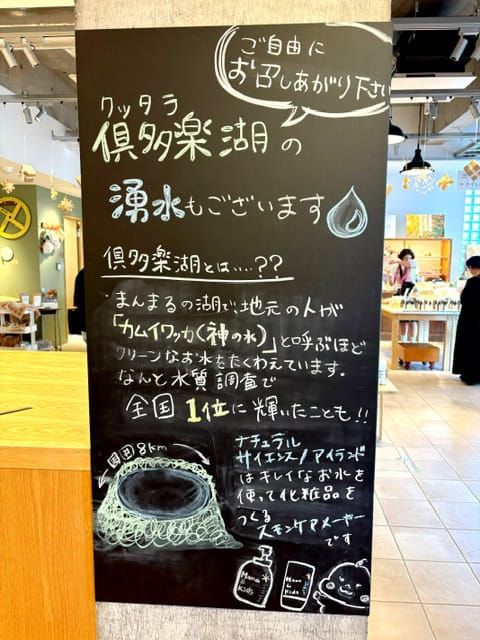 ご自由に
お召しあがり下さい
クッタラ
倶多楽湖の
湧水もございます
倶多楽湖とは....??
・まんまるの湖で、地元の人が
「カムイワッカ(神の水)」と呼ぶほど
クリーンなお水をたくわえています。
なんと水質調査で
全国1位に輝いたことも!!
周囲8km
ナチュラル
サイエンス/アイランド
はキレイなお水を
使って化粧品を
つくる
スキンケアメーカー
です
Mama
&
kids
Mama
&
Kids